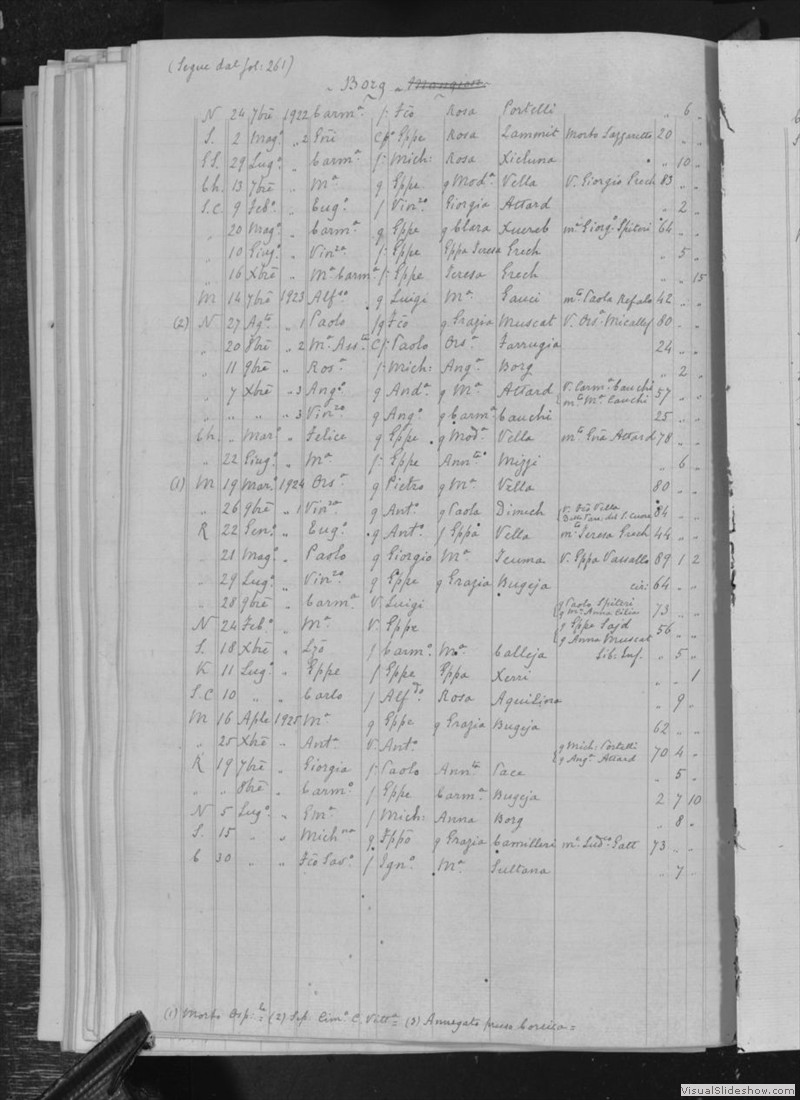 (Segue dal fol: 261)
„ Borg „ Mangion
N 24 7bre 1922 Carmª f: Fcõ Rosa Portelli „ 6 „
S. 2 Magº „ 2 Gnẽ Cfº Eppe Rosa Zammit Morto Lazzaretto 20 „ „
SS. 29 Lugº „ Carmª f: Mich: Rosa Xicluna „ 10 „
Ch. 13 7bre „ Mª g Eppe g Modª Vella V. Giorgio Grech 83 „ „
S.C. 9 Febº „ Eugº f Vinzo Giorgia Attard „ 2 „
„ 20 Magº „ Carmª g Eppe g Clara Xuereb mª Giorgº Spiteri 64 „ „
„ 10 Giugº „ Vinza f: Eppe Eppa Teresa Grech „ 5 „
„ 16 Xbre „ Mª Carmª f: Eppe Teresa Grech „ „ 15
M 14 7bre 1923 Alfso g Luigi Mª Gauci mto Paola Refalo 42 „ „
(2) N 27 Agto „ 1 Paolo fg Fcõ g Grazia Muscat V. Orsª Micallef 80 „ „
„ 20 8bre „ 2 Mª Assta Cf: Paolo Orsª Farrugia 24 „ „
„ 11 9bre „ Rosª f: Mich: Angª Borg „ 2 „
„ 7 Xbre „ 3 Angº g Andª g Mª Attard V. Carmª Cauchi mto Mª Cauchi 57 „ „
„ „ „ „ 3 Vinzo g Angº g Carmª Cauchi 25 „ „
Ch. „ Marº „ Felice g Eppe g Modª Vella mto Gnã Attard 78 „ „
„ 22 Giugº „ Mª f: Eppe Annta Mizzi „ 6 „
(1) M 19 Marº 1924 Orsª g Pietro g Mª Vella 80 „ „
„ 26 9bre „ 1 Vinza g Antº g Paola Dimech V. Fcõ Vella 84 „ „
R 22 Genº „ Eugº g Antº f Eppa Vella mto Teresa Grech 44 „ „
„ 21 Magº „ Paolo g Giorgio Mª Teuma V. Eppa Vassallo 89 1 2
„ 29 Lugº „ Vinzo g Eppe g Grazia Bugeja cir: 64 „ „
„ 28 9bre „ Carmª V. Luigi g Paolo Spiteri g Mª Anna Cilia 73 „ „
N 24 Febº „ Mª V. Eppe g Eppe Sajd g Anna Muscat 56 „ „
S. 18 Xbre „ Lzõ f Carmº Mª Calleja Sib. Inf. „ 5 „
K 11 Lugº „ Eppe f Eppe Eppa Xerri „ „ 1
S.C 10 „ „ Carlo f Alfso Rosa Aquilina „ 9 „
M 16 Aple 1925 Mª g Eppe g Grazia Bugeja 62 „ „
„ 25 Xbre „ Antª V. Antº g Mich: Portelli g Angª Attard 70 4 „
R 19 7bre „ Giorgia f: Paolo Annta Pace „ 5 „
„ „ 8bre „ Carmº f Eppe Carmª Bugeja 2 7 10
N 5 Lugº „ Emª f Mich: Anna Borg „ 8 „
S. 15 „ „ Michna g Fppõ g Grazia Camilleri mª Ludco Gatt 73 „ „
C 30 „ „ Fcõ Savº f Ignº Mª Sultana „ 7 „
(1) Morto Osp:le = (2) Sep. Cimº C. Vittª = (3) Annegato presso Corsica =
VisualSlideshow.com